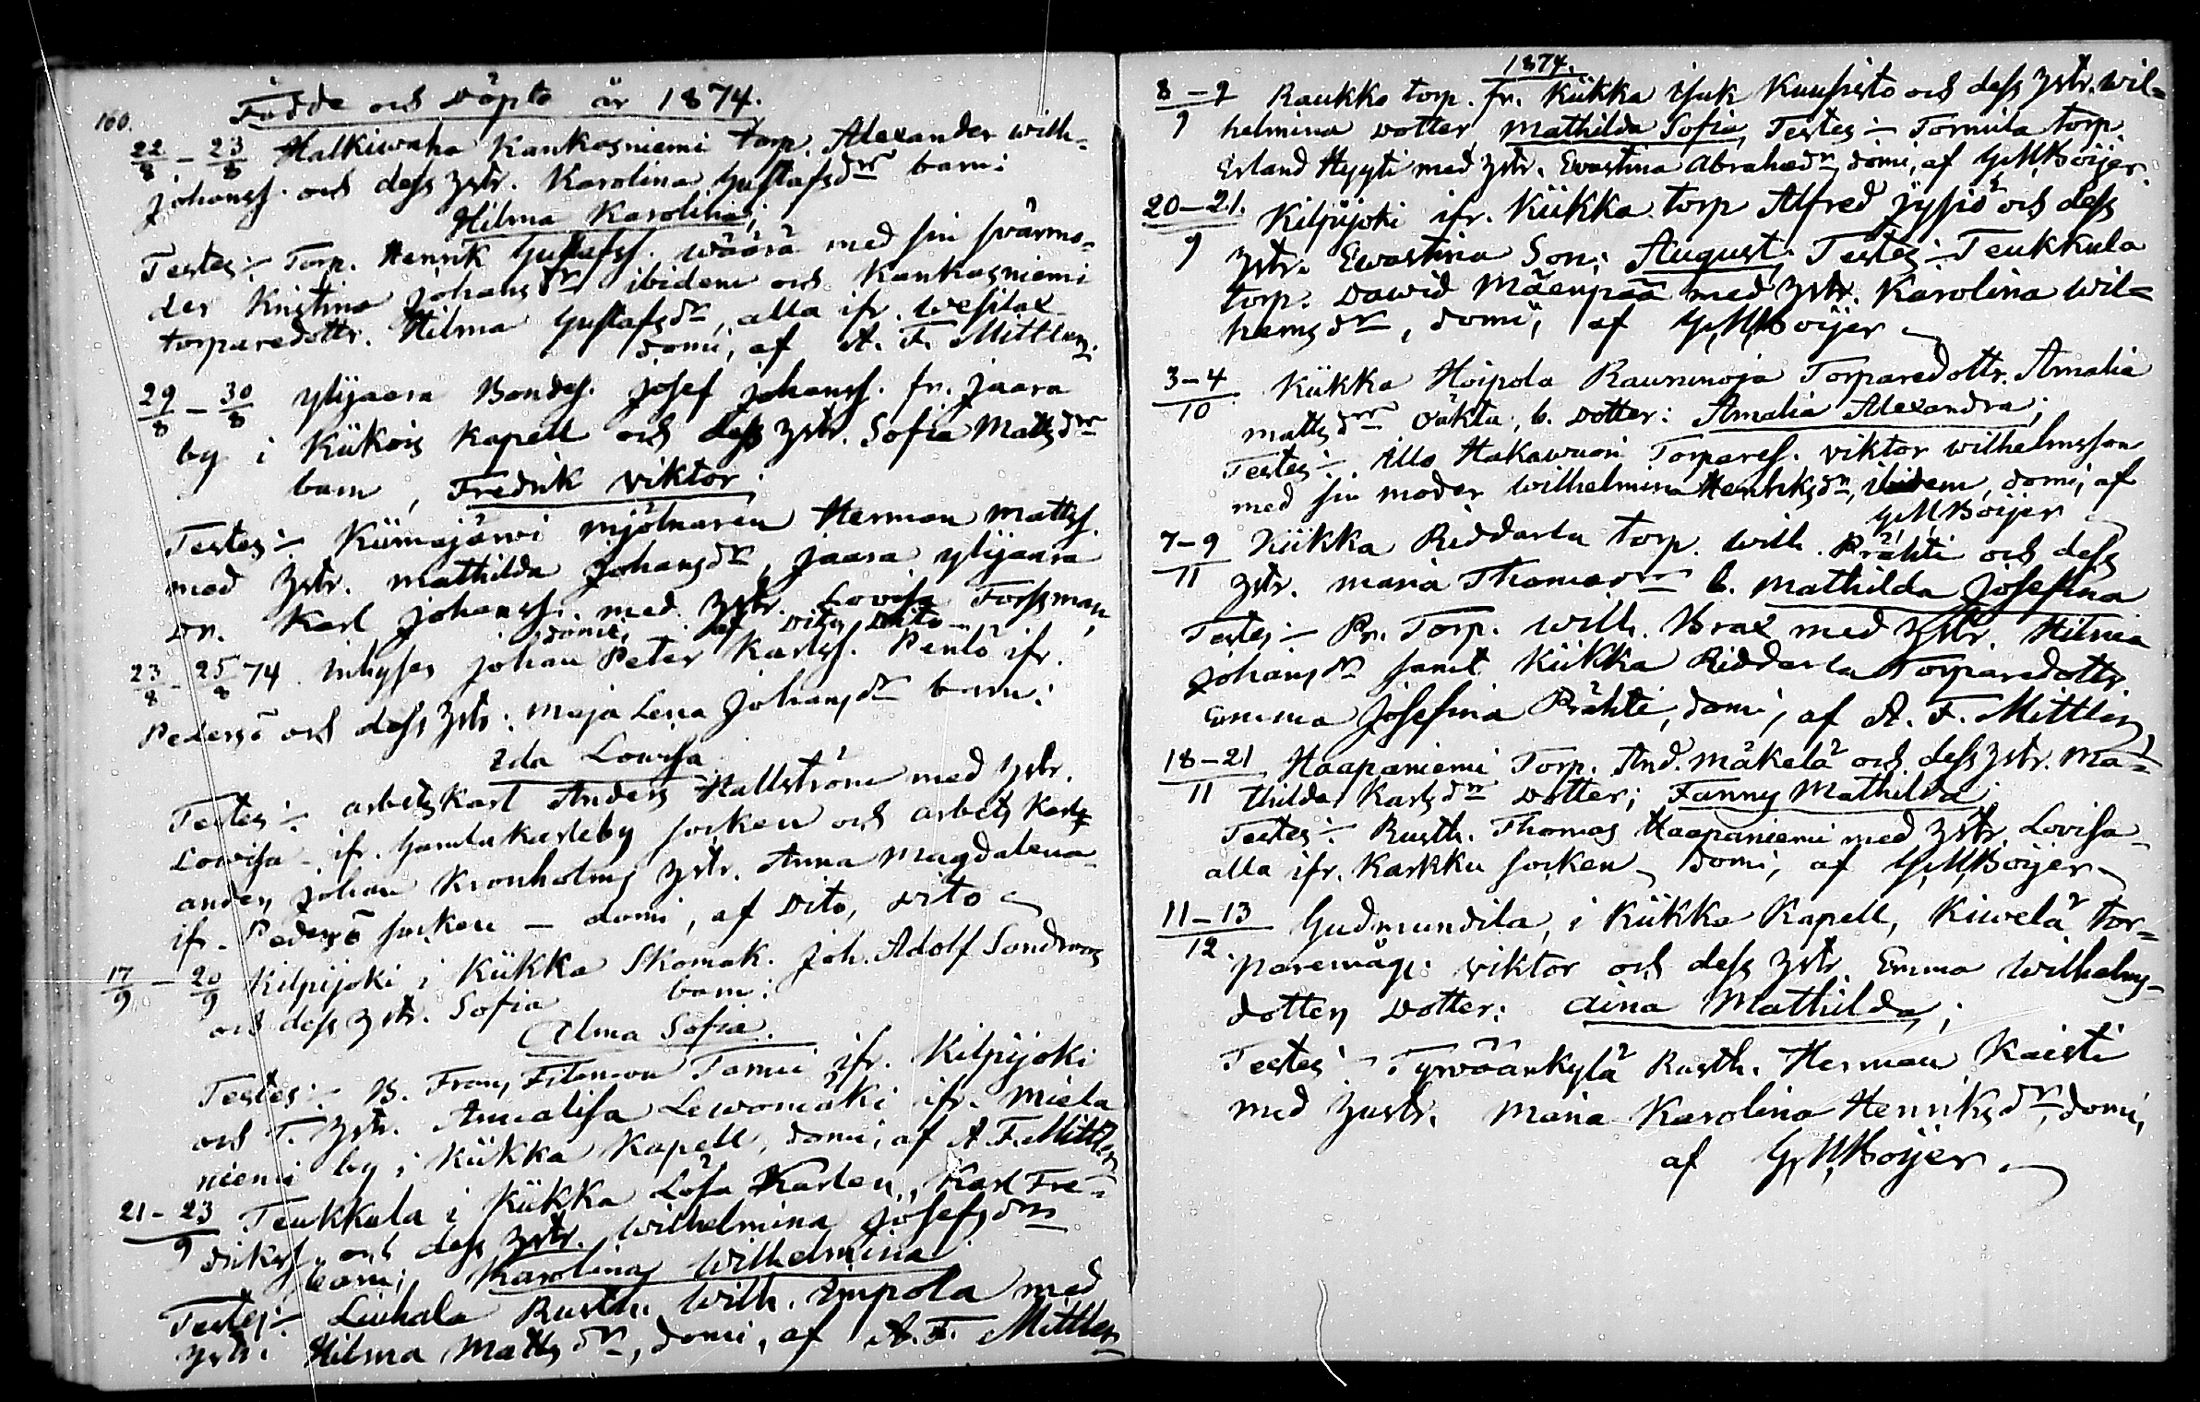 160.
Födde och Döpte år 1874.
22/8 - 23/8 Halkiwaha Kankasniemi torp. Alexander wilh=
Johanss. och dess hstr. Karolina Gustafsdr barn:
Hilma Karolina;
Testes:- Torp. Henrik Gustafss. wäärä med sin svärmo=
der Kristina Johansdr ibidem och Kankasniemi
torparedottr. Hilma Gustafsdr, alla ifr. wesilax
domi, af A. F. Mittler.
29/8 - 30/8 Ylijaara Bondes. Josef Johanss. fr. Jaara
by i Kiikois Kapell och dess hstr. Sofia Mattsdr
barn, Fredrik Viktor;
Testes:- Kiimajärvi mjölnaren Herman Mattss.
med hstr. Mathilda Johansdr, Jaara ylijaara
Dr. Karl Johanss. med hstr. Lovisa Forssman,
domi, af Dito Dito -
23/8 - 25/8 74 Inhyses Johan Peter Karlss. Penlö ifr.
Pedersö och dess hstr: Maja Lena Johansdr barn:
Ida Lowisa
Testes:- arbetskarl Anders Hallström med hstr.
Lowisa - ifr. Gamlakarleby socken och arbets Karls
anden Johan Kronholms hstr. Anna Magdalena
ifr. Pedersö socken - domi, af Dito, Dito
17/9 - 20/9 Kilpijoki i Kiikka Skomak. Joh. Adolf Sandroos
och dess hstr. Sofia barn:
Alma Sofia.
Testes:- B. Frans Filemon Tomui ifr. Kilpijoki
och T. hstr. Annalisa Lewomäki ifr. Miela
niemi by i Kiikka Kapell, domi, af A. F. Mittler
21-23/9 Teukkula i Kiikka Lösa Karlen, Karl Fre=
drikss. och dess hstr. Wilhelmina Josefsdr
barn; Karolina Wilhelmina
Testes:- Liuhala Rusth. Wilh. Impola med
hstr. Hilma Mattsdr, domi, af A. F. Mittler
1874.
8-9/9 Raukko torp. fr. Kiikka Isak Kuusisto och dess hstr. Wil=
helmina Dotter Mathilda Sofia, Testes:- Tormila torp.
Erland Hyyti med hstr. Evastina Abrahamdr, domi, af G. M. Boijer.
20-21/9 Kilpijoki ifr. Kiikka torp Alfred Jysiö och dess
hstr. Ewastina Son: August. Testes:- Teukkula
torp. Dawid Mäenpää med hstr. Karolina Wil=
hemsdr, domi, af G. M. Boijer
3-4/10 Kiikka Hoipola Raununoja Torparedottr. Amalia
Mattsdr oäkta, b. Dotter: Amalia Alexandra;
Testes:- Illo Hakawuori Torpares. Viktor Wilhelmsson
med sin moder Wilhelmina Henriksdr, ibidem, domi, af
G. M. Boijer
7-9/11 Kiikka Riddarla torp. Wilh. Prähti och dess
hstr. Maria Thomasdr b. Mathilda Josefina
Testes:- Pr. Torp. Wilh. Brax med hstr. Hilma
Johansdr samt Kiikka Riddarla Torparedottr
Emma Josefina Prähti, domi, af A. F. Mittler,
18-21/11 Haapaniemi Torp. And. Mäkelä och dess hstr. Ma=
thilda Karlsdr Dotter; Fanny Mathilda;
Testes:- Rusth. Thomas Haapaniemi med hstr. Lovisa
alla ifr. Karkku socken - domi, af G. M. Boijer
11-13/12 Gudmundila, i Kiikka Kapell, Kiwelä tor=
paremåg: Viktor och dess hstr. Emma Wilhelms=
dotters Dotter: Aina Mathilda;
Testes:- Tyrväänkylä Rusth. Herman Kaisti
med hustr. Maria Karolina Henriksdr, domi,
af G. M. Boijer